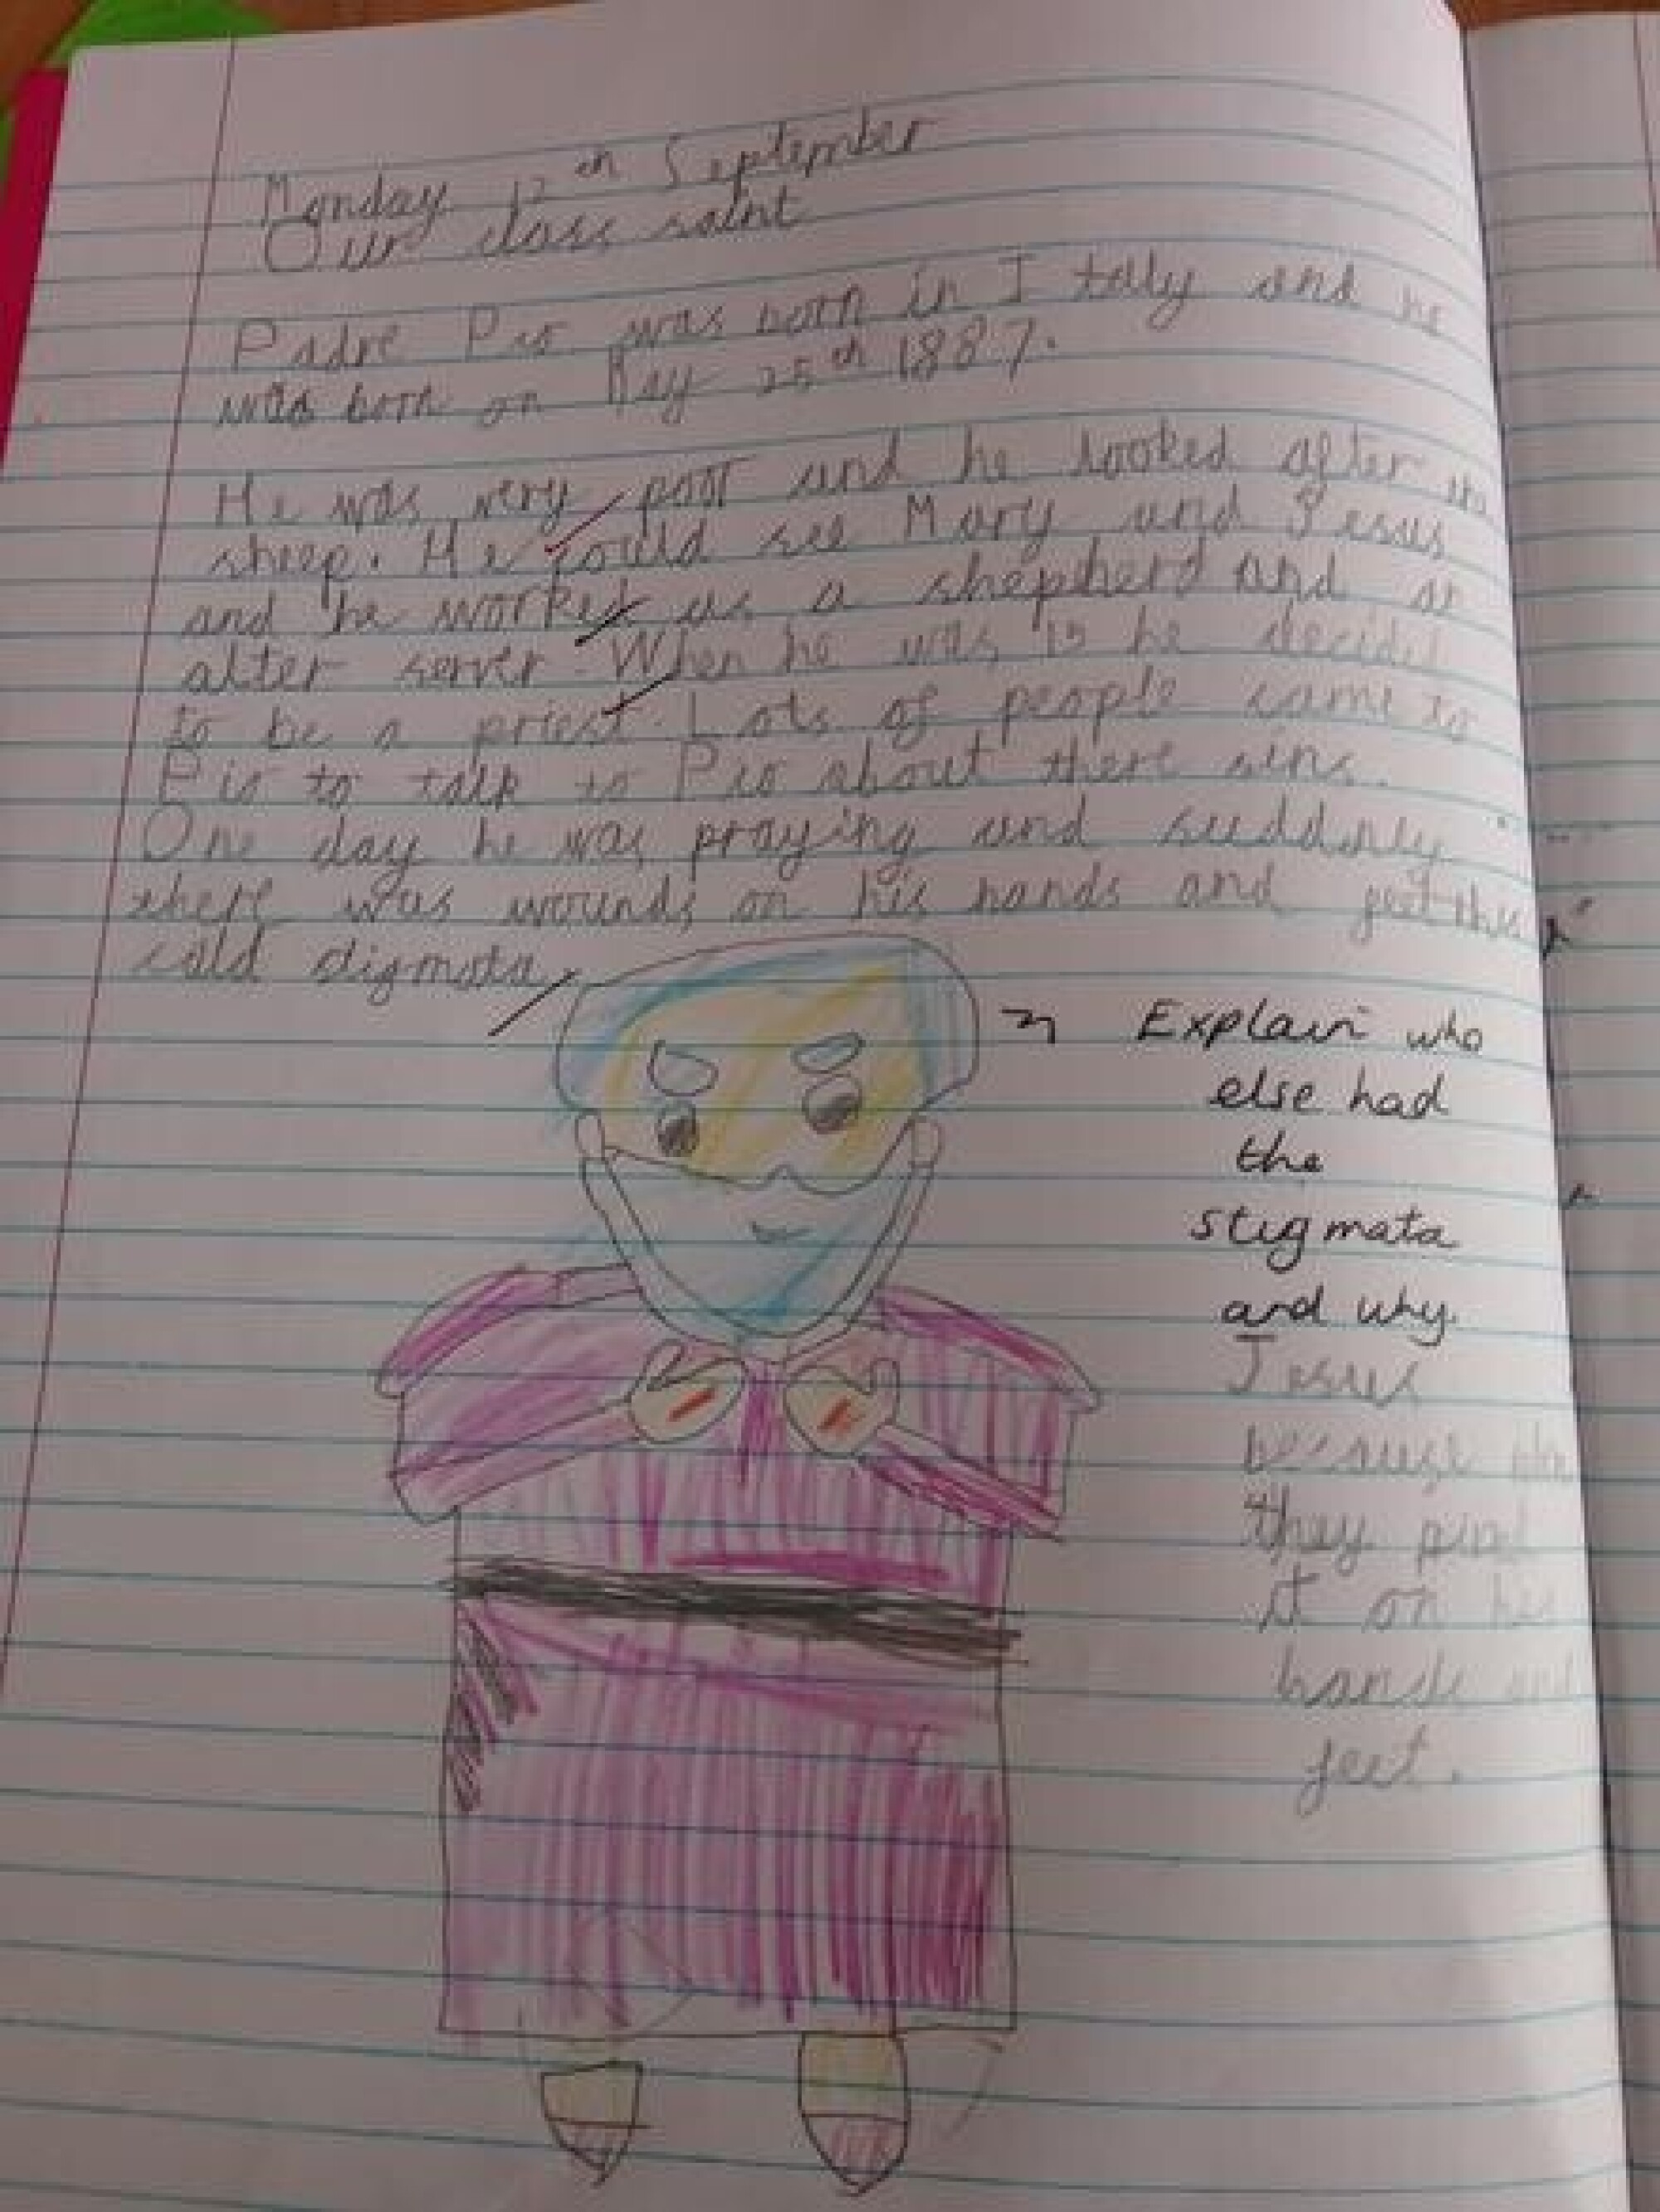 Monday 12th September
Our class saint
Padre Pio was born in Italy and he
was born on May 25th 1887.
He was very poor and he looked after the
sheep. He could see Mary and Jesus
and he worked as a shepherd and an
alter server. When he was 15 he decided
to be a priest. Lots of people came to
Pio to talk to Pio about there sins.
One day he was praying and suddonly
there was wounds on his hands and feet this
cald stigmata
Explain who
else had
the
stigmata
and why.
Jesus
because
they pined
it on his
hands and
feet.